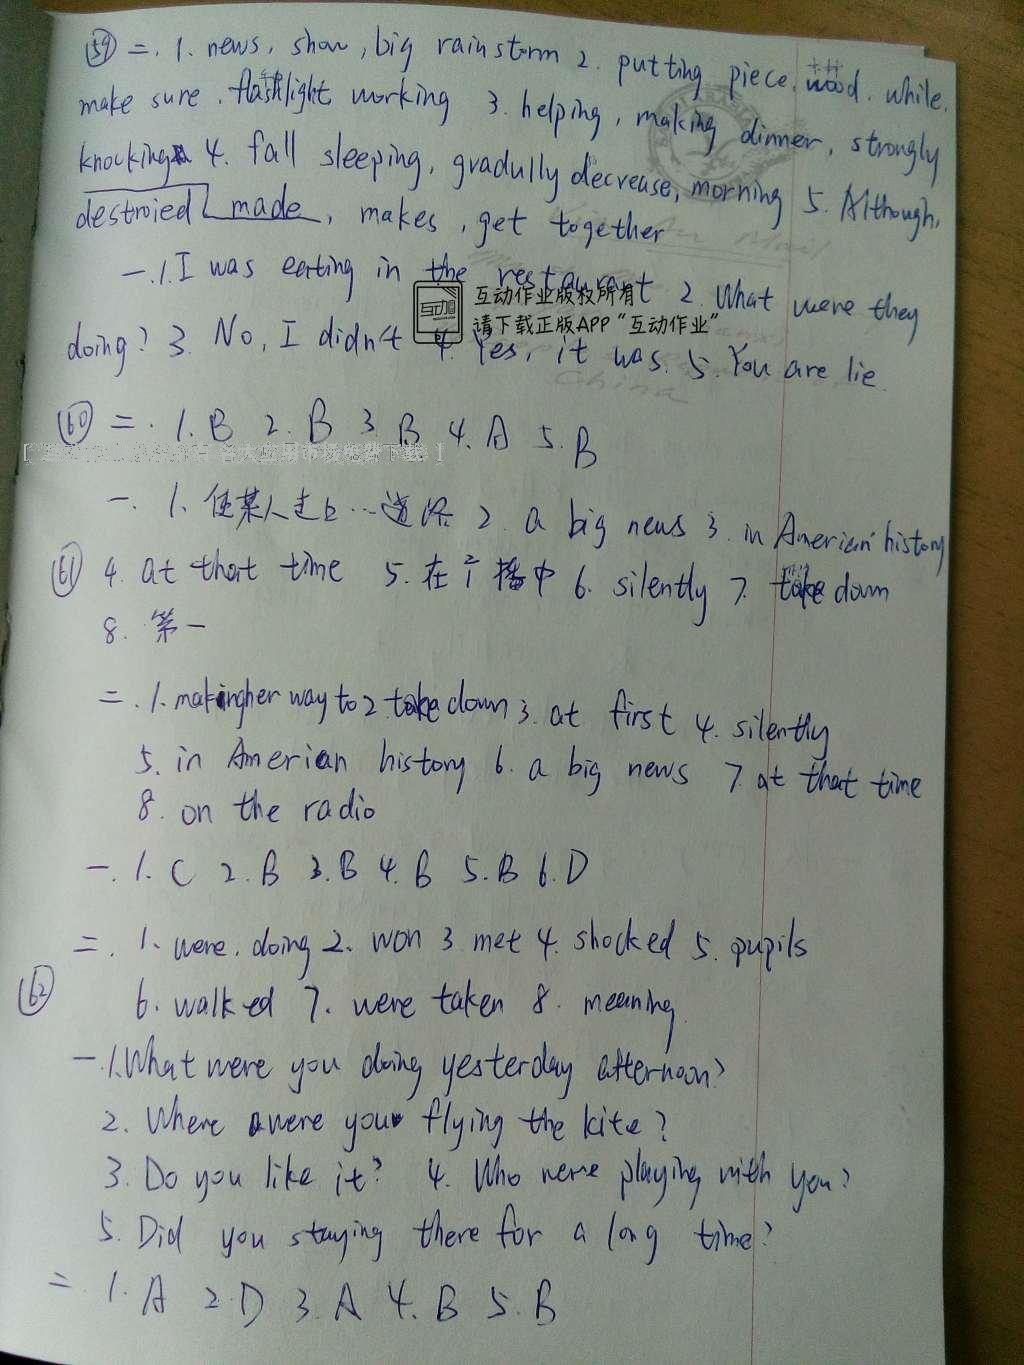 59 二. 1. news, show, big rainstorm 2. putting piece, wood. while,
make sure, flashlight working 3. helping, making dinner, strongly
knocking 4. fall sleeping, gradully decrease, morning 5. Although,
destroied made, makes, get together
一.1. I was eating in the restaurant 2. What were they
互动作业版权所有
请下载正版APP“互动作业”
doing? 3. No, I didn't 4. Yes, it was. 5. You are lie.
60 二. 1. B 2. B 3. B 4. A 5. B
一. 1. 使某人走上…道路 2. a big news 3. in American history
61 4. at that time 5. 在广播中 6. silently 7. take down
8. 第一
二. 1. making her way to 2. take down 3. at first 4. silently
5. in American history 6. a big news 7. at that time
8. on the radio
一. 1. C 2. B 3. B 4. B 5. B 6. D
二. 1. were, doing 2. won 3. met 4. shocked 5. pupils
62 6. walked 7. were taken 8. meaning
一.1. What were you doing yesterday afternoon?
2. Where were you flying the kite?
3. Do you like it? 4. Who were playing with you?
5. Did you staying there for a long time?
二 1. A 2. D 3. A 4. B 5. B